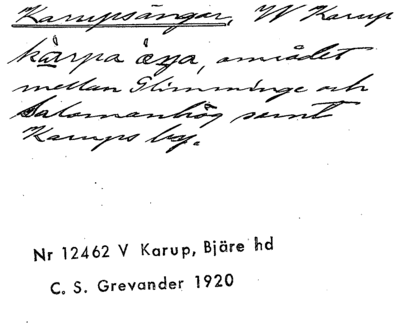 Karupsängar, V Karup
kárpa ǫ́ŋa, området
mellan Glimminge och
Salomonhög samt
Karups by.
Nr 12462 V Karup, Bjäre hd
C. S. Grevander 1920